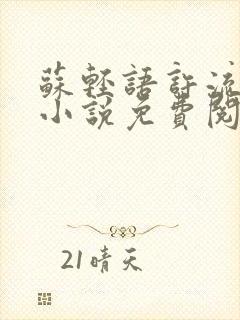 蘇輕語許流
小說免費閱
21晴天